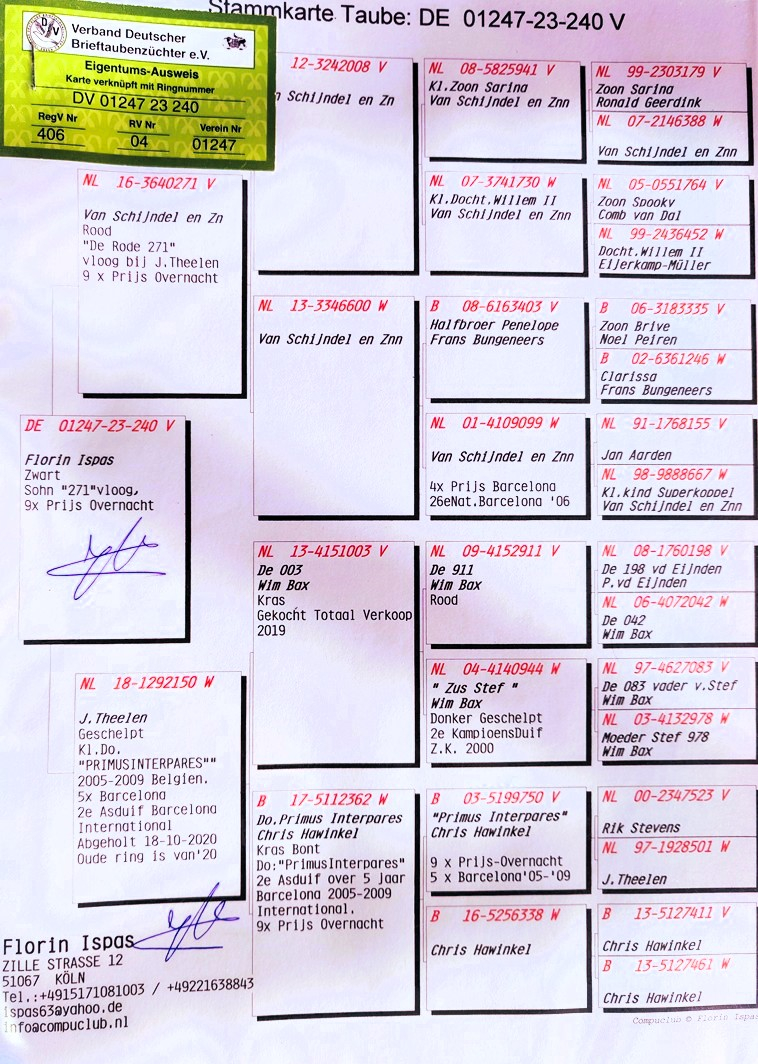 Stammkarte Taube: DE 01247-23-240 V
Verband Deutscher
Brieftaubenzüchter e.V.
Eigentums-Ausweis
Karte verknüpft mit Ringnummer
DV 01247 23 240
RegV Nr RV Nr Verein Nr
406 04 01247
DE 01247-23-240 V
Florin Ispas
Zwart
Sohn "271"vloog,
9x Prijs Overnacht
NL 16-3640271 V
Van Schijndel en Zn
Rood
"De Rode 271"
vloog bij J.Theelen
9 x Prijs Overnacht
NL 18-1292150 W
J.Theelen
Geschelpt
Kl.Do.
"PRIMUSINTERPARES""
2005-2009 Belgien.
5x Barcelona
2e Asduif Barcelona
International
Abgeholt 18-10-2020
Oude ring is van'20
12-3242008 V
Schijndel en Zn
NL 13-3346600 W
Van Schijndel en Znn
NL 13-4151003 V
De 003
Wim Bax
Kras
Gekocht Totaal Verkoop
2019
B 17-5112362 W
Do.Primus Interpares
Chris Hawinkel
Kras Bont
Do:"PrimusInterpares"
2e Asduif over 5 jaar
Barcelona 2005-2009
International.
9x Prijs Overnacht
NL 08-5825941 V
Kl.Zoon Sarina
Van Schijndel en Znn
NL 07-3741730 W
Kl.Docht.Willem II
Van Schijndel en Znn
B 08-6163403 V
Halfbroer Penelope
Frans Bungeneers
NL 01-4109099 W
Van Schijndel en Znn
4x Prijs Barcelona
26eNat.Barcelona '06
NL 09-4152911 V
De 911
Wim Bax
Rood
NL 04-4140944 W
" Zus Stef "
Wim Bax
Donker Geschelpt
2e KampioensDuif
Z.K. 2000
B 03-5199750 V
"Primus Interpares"
Chris Hawinkel
9 x Prijs-Overnacht
5 x Barcelona'05-'09
B 16-5256338 W
Chris Hawinkel
NL 99-2303179 V
Zoon Sarina
Ronald Geerdink
NL 07-2146388 W
Van Schijndel en Znn
NL 05-0551764 V
Zoon Spooky
Comb van Dal
NL 99-2436452 W
Docht.Willem II
Eijerkamp-Müller
B 06-3183335 V
Zoon Brive
Noel Peiren
B 02-6361246 W
Clarissa
Frans Bungeneers
NL 91-1768155 V
Jan Aarden
NL 98-9888667 W
Kl.kind Superkoppel
Van Schijndel en Znn
NL 08-1760198 V
De 198 vd Eijnden
P.vd Eijnden
NL 06-4072042 W
De 042
Wim Bax
NL 97-4627083 V
De 083 vader v.Stef
Wim Bax
NL 03-4132978 W
Moeder Stef 978
Wim Bax
NL 00-2347523 V
Rik Stevens
NL 97-1928501 W
J.Theelen
B 13-5127411 V
Chris Hawinkel
B 13-5127461 W
Chris Hawinkel
Florin Ispas
ZILLE STRASSE 12
51067 KÖLN
Tel.:+4915171081003 / +49221638843
ispas63@yahoo.de
info@compuclub.nl
Compuclub © Florin Ispas